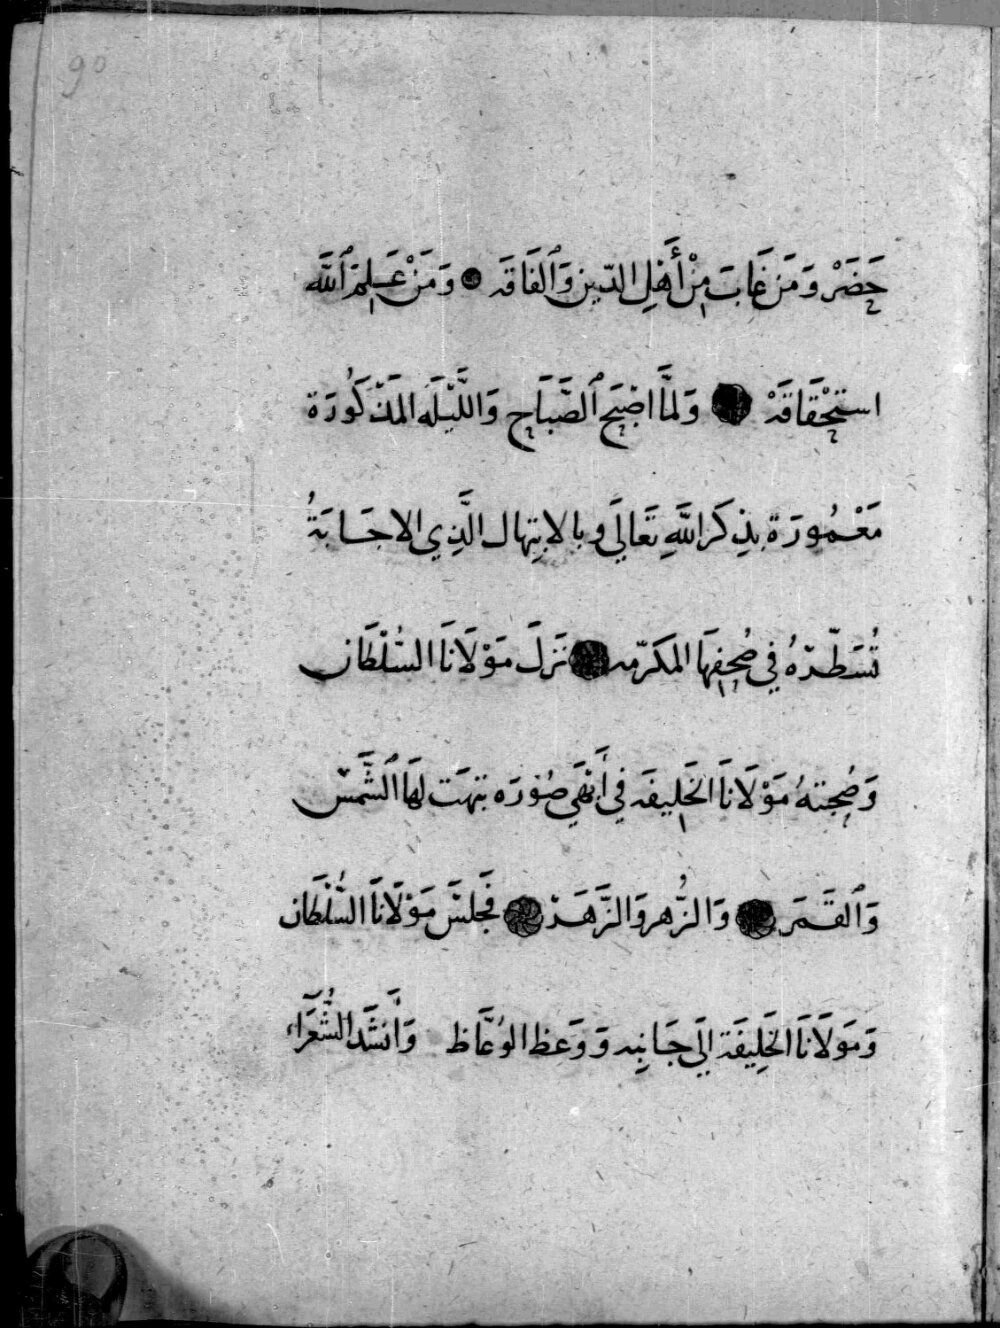 90
حَضَرْ وَمَن غَابَ مِنْ أَهْلِ الدّين وَٱلفَاقَه ● وَمَنْ عَلِمَ ٱللَّه
استحْقَاقَهْ ● وَلمَّا اصْبَح ٱلصَّبَاح وَاللَّيْلَه المَذكُورَة
مَعْمُورَة بذِكَر اللَّهِ تَعَالَي وبالابتِهال الَّذِي الاجَابَةُ
تُسَطّرهُ في صُحفِهَا المكَرّمه ● نَزَلَ مَوْلَانَا السُّلْطَان
وَصُحبتهُ مَوْلَانَا الخَلِيفَه في أَبْهَي صُوْرَه بَهَت لهَا ٱلشَّمْس
وَٱلقَمَر ● وَالزُّهر وَالزَّهَرْ ● فَجَلسَ مَوْلَانَا السُّلْطَان
وَمَولَانَا الخَلِيفَة الَي جَانِبِه وَوَعظ الوُعَّاظ وَأَنشَد الشُّعَرَاء